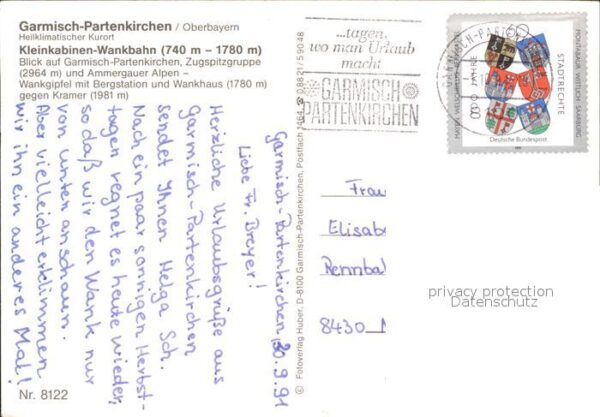 Garmisch-Partenkirchen / Oberbayern
Heilklimatischer Kurort
Kleinkabinen-Wankbahn (740 m – 1780 m)
Blick auf Garmisch-Partenkirchen, Zugspitzgruppe
(2964 m) und Ammergauer Alpen –
Wankgipfel mit Bergstation und Wankhaus (1780 m)
gegen Kramer (1981 m)
Garmisch-Partenkirchen, 20.9.91
Liebe Fr. Breyer!
Herzliche Urlaubsgrüße aus
Garmisch-Partenkirchen
sendet Ihnen Helga Sch.
Nach ein paar sonnigen Herbst-
tagen regnet es heute wieder,
so daß wir den Wank nur
von unten anschaun.
Aber vielleicht erklimmen
wir ihn ein anderes Mal!
Nr. 8122
© Fotoverlag Huber, D-8100 Garmisch-Partenkirchen, Postfach 1464, ☎ 08821/59048
...tagen,
wo man Urlaub
macht
GARMISCH
PARTENKIRCHEN
GARMISCH-PARTENK
STADTRECHTE
JAHRE
MONTABAUR WITTLICH SAARBURG
MAYEN
Deutsche Bundespost
Frau
Elisab
Rennba
8430
privacy protection
Datenschutz